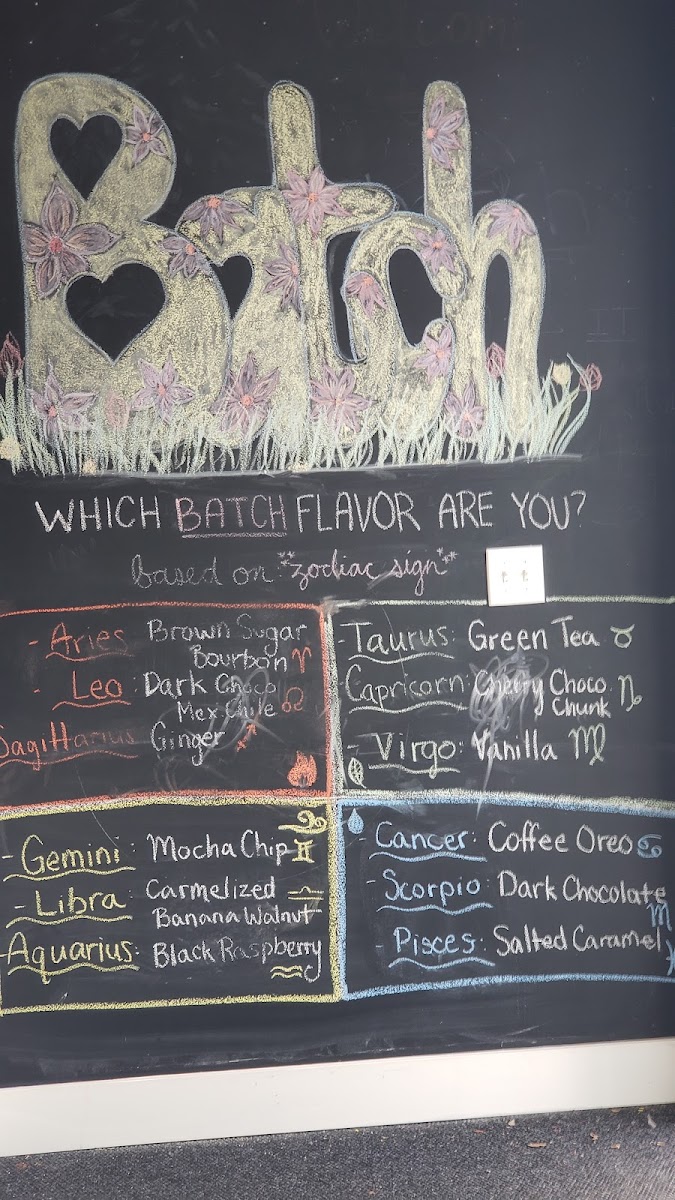 Batch
WHICH BATCH FLAVOR ARE YOU?
based on "zodiac sign"
- Aries Brown Sugar
Bourbon ♈
- Leo: Dark Choco
Mex Chile ♌
Sagittarius Ginger ♐
- Taurus: Green Tea ♉
Capricorn: Cherry Choco ♑
Chunk
- Virgo: Vanilla ♍
- Gemini: Mocha Chip ♊
- Libra: Carmelized ♎
Banana Walnut
- Aquarius: Black Raspberry ♒
- Cancer: Coffee Oreo ♋
- Scorpio: Dark Chocolate ♏
- Pisces: Salted Caramel ♓